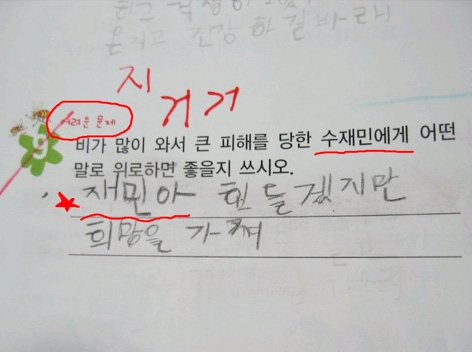 하고
지
거거
어려운 문제
비가 많이 와서 큰 피해를 당한 수재민에게 어떤
말로 위로하면 좋을지 쓰시오.
재민아 힘들겠지만
희망을 가져